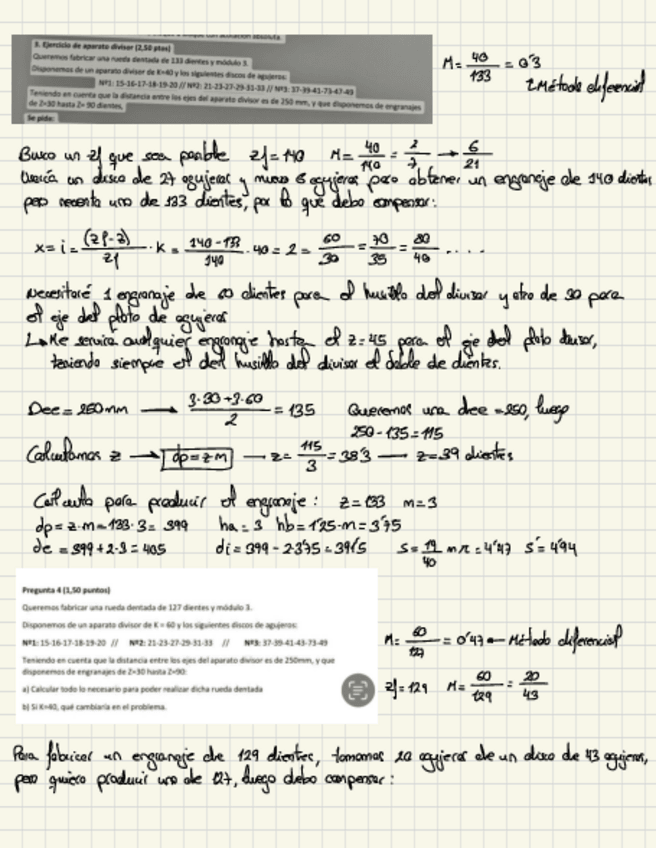 3. Ejercicio de aparato divisor (2,50 ptos)
Queremos fabricar una rueda dentada de 133 dientes y módulo 3.
Disponemos de un aparato divisor de K=40 y los siguientes discos de agujeros:
Nº1: 15-16-17-18-19-20 // Nº2: 21-23-27-29-31-33 // Nº3: 37-39-41-43-47-49
Teniendo en cuenta que la distancia entre los ejes del aparato divisor es de 250 mm, y que disponemos de engranajes
de Z=30 hasta Z= 90 dientes,
Se pide:
M = 40/133 = 0'3
Método diferencial
Busco un zf que sea posible zf = 140 M = 40/140 = 2/7 → 6/21
Usaría un disco de 27 agujeros y muevo 6 agujeros para obtener un engranaje de 140 dientes
pero necesito uno de 133 dientes, por lo que debo compensar:
x = i = (zf-z)/zf · K = 140-133/140 · 40 = 2 = 60/30 = 70/35 = 80/40 ....
Necesitaré 1 engranaje de 60 dientes para el husillo del divisor y otro de 30 para
el eje del plato de agujeros
↳ Me serviría cualquier engranaje hasta el z=45 para el eje del plato divisor,
teniendo siempre el del husillo del divisor el doble de dientes.
Dee = 250mm → 3·30+3·60/2 = 135 Queremos una dee = 250, luego
250-135 = 115
Calculamos z → dp = z·m → z = 115/3 = 38'3 → z = 39 dientes
Calculo para producir el engranaje: z = 133 m = 3
dp = z·m = 133·3 = 399 ha = 3 hb = 1'25·m = 3'75
de = 399 + 2·3 = 405 di = 399 - 2·3'75 = 391'5 s = 19/40 m π = 4'47 s' = 4'94
Pregunta 4 (1,50 puntos)
Queremos fabricar una rueda dentada de 127 dientes y módulo 3.
Disponemos de un aparato divisor de K = 60 y los siguientes discos de agujeros:
Nº1: 15-16-17-18-19-20 // Nº2: 21-23-27-29-31-33 // Nº3: 37-39-41-43-49
Teniendo en cuenta que la distancia entre los ejes del aparato divisor es de 250mm, y que
disponemos de engranajes de Z=30 hasta Z=90:
a) Calcular todo lo necesario para poder realizar dicha rueda dentada
b) Si K=40, qué cambiaría en el problema.
M = 60/127 = 0'47 ← Método diferencial
zf = 129 M = 60/129 = 20/43
Para fabricar un engranaje de 129 dientes, tomamos 20 agujeros de un disco de 43 agujeros,
pero quiero producir uno de 127, luego debo compensar: